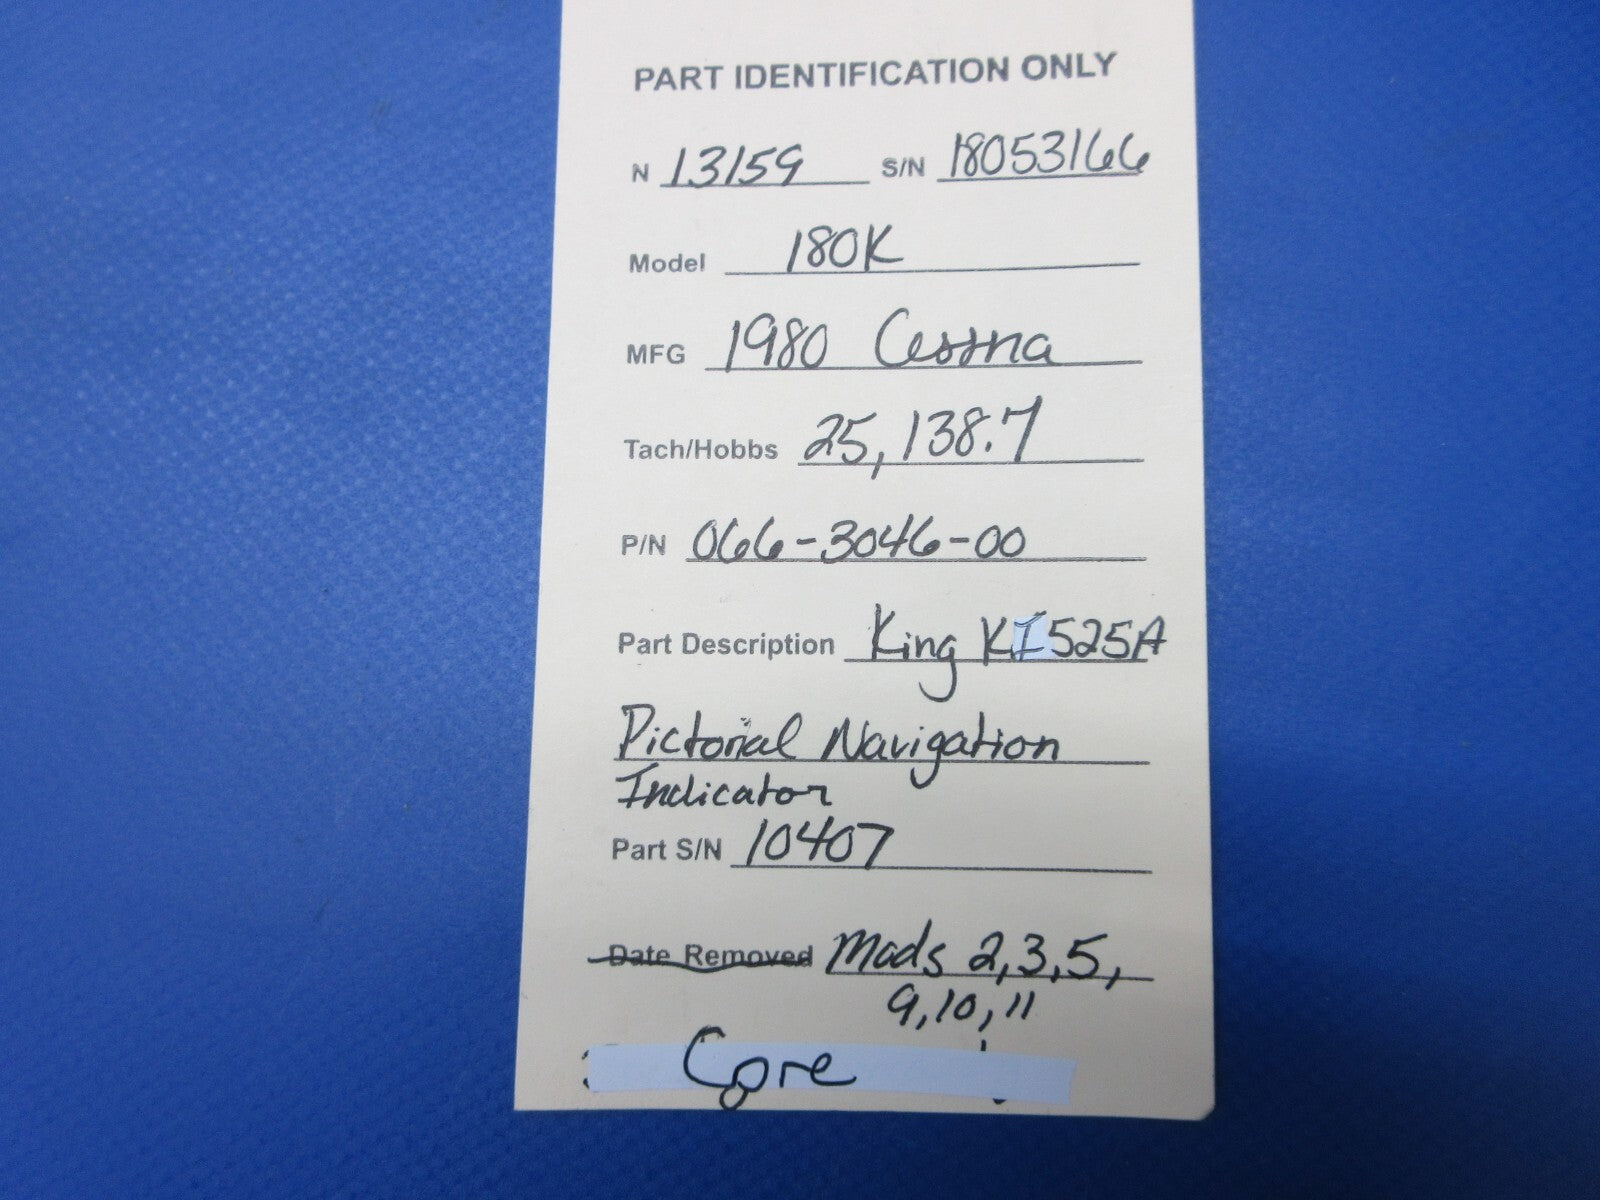 PART IDENTIFICATION ONLY
N 13159 S/N 18053166
Model 180K
MFG 1980 Cessna
Tach/Hobbs 25,138.7
P/N 066-3046-00
Part Description King KI525A
Pictorial Navigation
Indicator
Part S/N 10407
Date Removed Mods 2,3,5,
9,10,11
Core